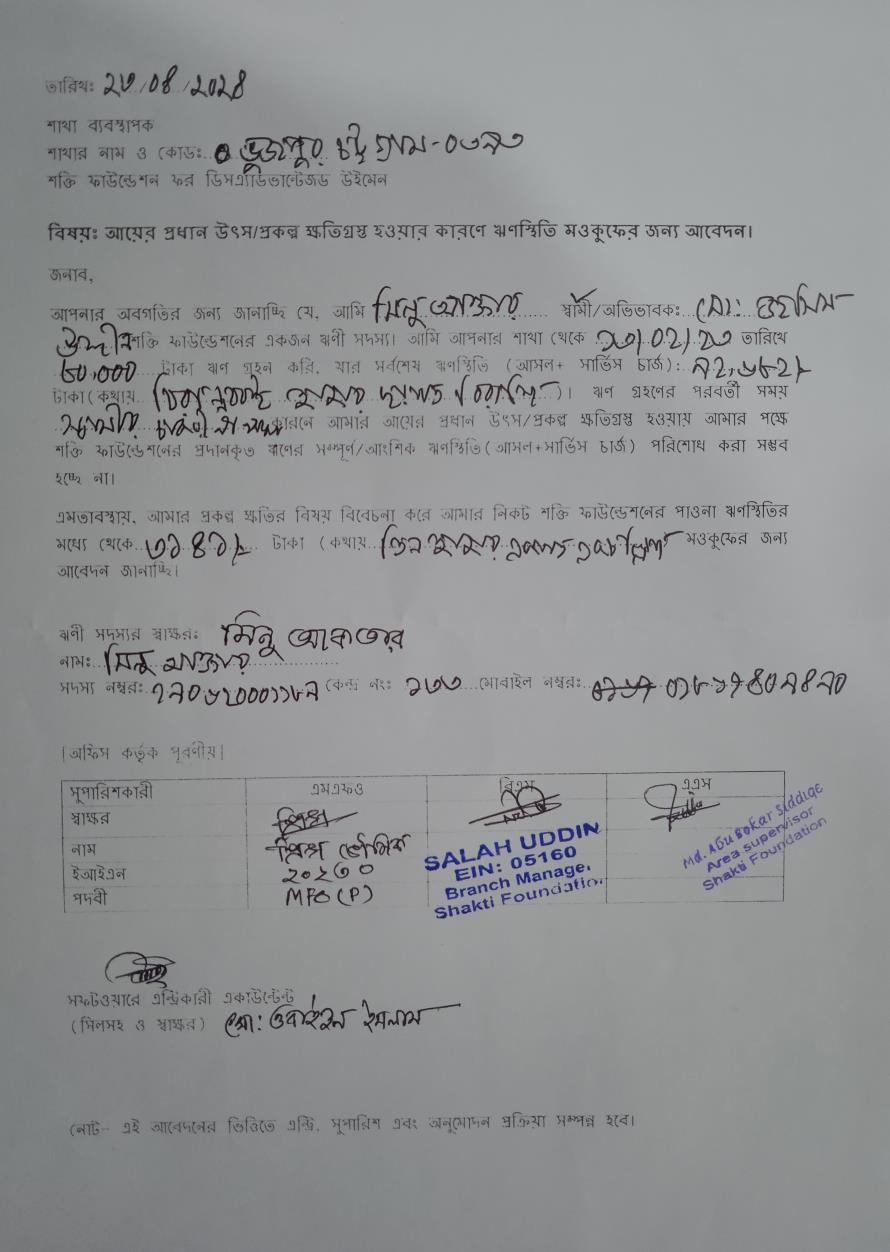 তারিখঃ ২৩/০৪/২০২৪
শাখা ব্যবস্থাপক
শাখার নাম ও কোডঃ ভূজপুর চট্টগ্রাম-০৩৯৩
শক্তি ফাউন্ডেশন ফর ডিসএ্যাডভান্টেজড উইমেন
বিষয়ঃ আয়ের প্রধান উৎস/প্রকল্প ক্ষতিগ্রস্থ হওয়ার কারণে ঋণস্থিতি মওকুফের জন্য আবেদন।
জনাব,
আপনার অবগতির জন্য জানাচ্ছি যে, আমি মিনু আক্তার স্বামী/অভিভাবকঃ মো:
শক্তি ফাউন্ডেশনের একজন ঋণী সদস্য। আমি আপনার শাখা থেকে তারিখে
৬০,০০০ টাকা ঋণ গ্রহন করি, যার সর্বশেষ ঋণস্থিতি (আসল+ সার্ভিস চার্জ):
টাকা(কথায় )। ঋণ গ্রহণের পরবর্তী সময়
কারনে আমার আয়ের প্রধান উৎস/প্রকল্প ক্ষতিগ্রস্থ হওয়ায় আমার পক্ষে
শক্তি ফাউন্ডেশনের প্রদানকৃত ঋণের সম্পূর্ণ/আংশিক ঋণস্থিতি(আসল+সার্ভিস চার্জ) পরিশোধ করা সম্ভব
হচ্ছে না।
এমতাবস্থায়, আমার প্রকল্প ক্ষতির বিষয় বিবেচনা করে আমার নিকট শক্তি ফাউন্ডেশনের পাওনা ঋণস্থিতির
মধ্যে থেকে টাকা (কথায় মওকুফের জন্য
আবেদন জানাচ্ছি।
ঋণী সদস্যর স্বাক্ষরঃ মিনু আকতার
নামঃ মিনু আক্তার
সদস্য নম্বরঃ কেন্দ্র নং: ১৩৩ মোবাইল নম্বরঃ
[অফিস কর্তৃক পূরণীয়]
সুপারিশকারী এমএফও বিএম এএস
স্বাক্ষর
নাম
SALAH UDDIN
EIN: 05160
Branch Manager
Shakti Foundation
Md. Abu Bokar Siddiqe
Area supervisor
Shakti Foundation
ইআইএন ২০২৩০
পদবী MFO(P)
সফটওয়ারে এন্ট্রিকারী একাউন্টেন্ট
(সিলসহ ও স্বাক্ষর) মো: ইসলাম
নোট- এই আবেদনের ভিত্তিতে এন্ট্রি, সুপারিশ এবং অনুমোদন প্রক্রিয়া সম্পন্ন হবে।